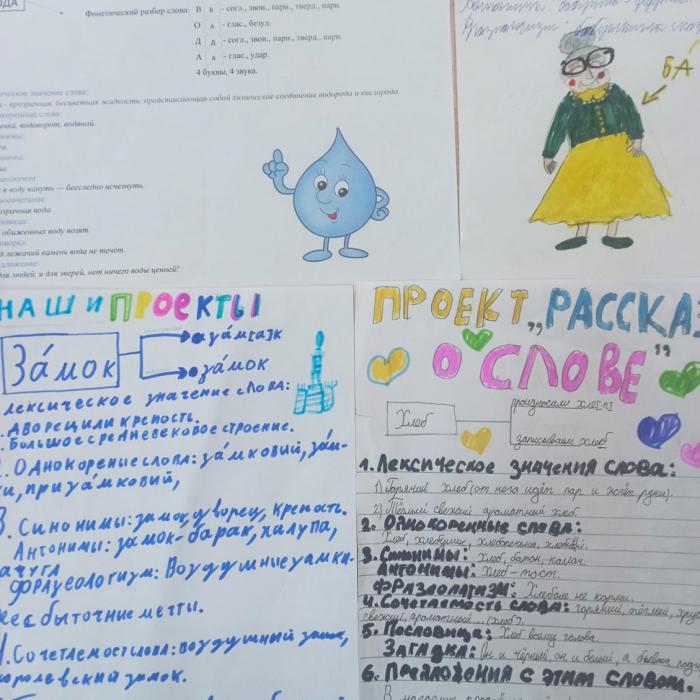 ОДА
Фонетический разбор слова: В в - согл., звон., парн., тверд., парн.
О а - глас., безуд.
Д д - согл., звон., парн., тверд., парн.
А а - глас., удар.
4 буквы, 4 звука.
ческое значение слова:
- прозрачная, бесцветная жидкость, представляющая собой химическое соединение водорода и кислорода.
водоворот, водяной.
в воду кануть — бесследно исчезнуть.
зрачная вода.
обиженных воду возят.
д лежачий камень вода не течёт.
для людей, и для зверей, нет ничего воды ценней!
БА
НАШИ ПРОЕКТЫ
За́мок
за́м[а]к
за́мок
лексическое значение слова:
. Дворец или крепость.
. Большое средневековое строение.
. Однокореные слова: за́мковий, зам-
ки, приза́мковий,
3. Синонимы: замок, дворец, крепость.
Антонимы: замок-барак, халупа,
ачуга
Фразеологизм: Воздушные замки-
несбыточные мечты.
. Сочетаемость слова: воздушный замок,
королевский замок.
ПРОЕКТ „РАССКАЗ
О СЛОВЕ"
Хлеб
произносим хле[п]
записываем хлеб
1. Лексическое значения слова:
1) Горячий хлеб (от него идёт пар и жжёт руки).
2) Тёплый свежий ароматный хлеб.
2. Однокоренные слова:
Хлеб, хлебушек, хлебопечька,
3. Синонимы: хлеб, батон, калач.
Антонимы: Хлеб-тост.
Фразеологизм: Хлебом не корми.
4. Сочетаемость слова: горячий, тёплый, хрус
свежий, ароматный... (хлеб).
5. Пословица: Хлеб всему голова.
Загадка: Он и чёрный, он и белый, а бывает подж
6. Предложения с этим словом.